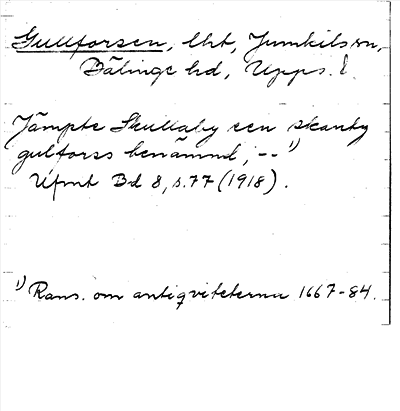 Gullforsen, lht, Jumkils sn,
Bälinge hd, Upps. l.
Jämpte Skullaby een skants
gulforss benämnd, -- 1)
Ufmt Bd 8, s. 77 (1918).
1) Rans. om antiqviteterna 1667-84.